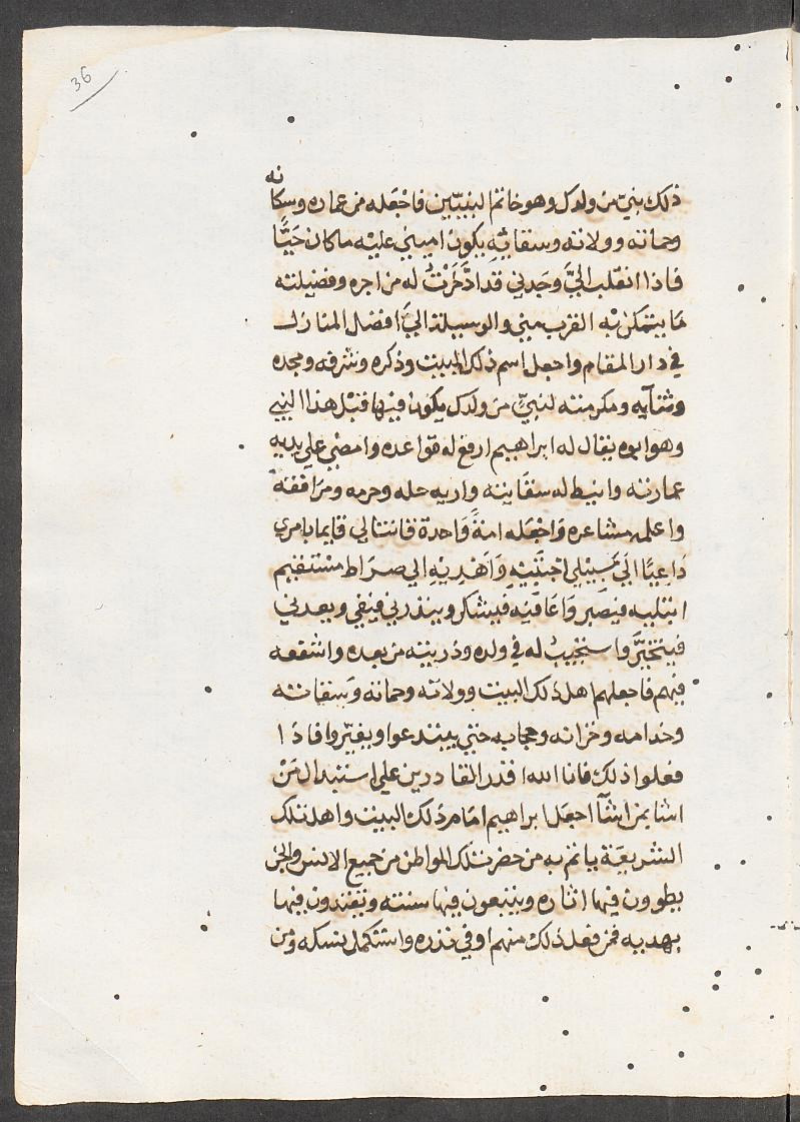 36
ذلك بنيّ من ولدك وهو خاتم النبيّين فاجعله من عماره وسكانه
وحماته وولاته وسقايته يكون اميني عليه ماكان حيًّا
فاذا انقلب اليَّ وجدني قد ادّخرتُ له من اجره وفضيلته
ما يتمكن به القرب مني والوسيلة اليَّ افضل المنازل
في دار المقام واجعل اسم ذلك البيت وذكره وشرفه ومجده
وثنايه ومكرمته لنبيّ من ولدك يكون فيها قبل هذا النبي
وهو ابوه يقال له ابراهيم ارفع له قواعده وامضي علي يديه
عمارته وانبط له سقايته واريه حله وحرمه ومرافقه
واعلمه مشاعره واجعله امةً واحدة قانتا لي قايما بامري
داعيًا الي سبيلي اجتبيه واهديه الي صراط مستقيم
ابتليه فيصبر واعافيه فيشكر وينذرني فيفي ويعدني
فينجز واستجيبُ له في ولده وذريته من بعده واشفعه
فيهم فاجعلهم اهل ذلك البيت وولاته وحماته وسقاته
وخدامه وخزانه وحجابه حتي يبتدعوا ويغيّروا فاذا
فعلوا ذلك فانا الله اقدر القادرين علي استبدال من
اشا بمن اشآ اجعل ابراهيم امام ذلك البيت واهل تلك
الشريعة ياتم به من حضر تلك المواطن من جميع الانس والجن
يطوون فيها اثاره ويتبعون فيها سنته ويقتدون فيها
بهديه فمن فعل ذلك منهم اوفي نذره واستكمل نسكه ومن